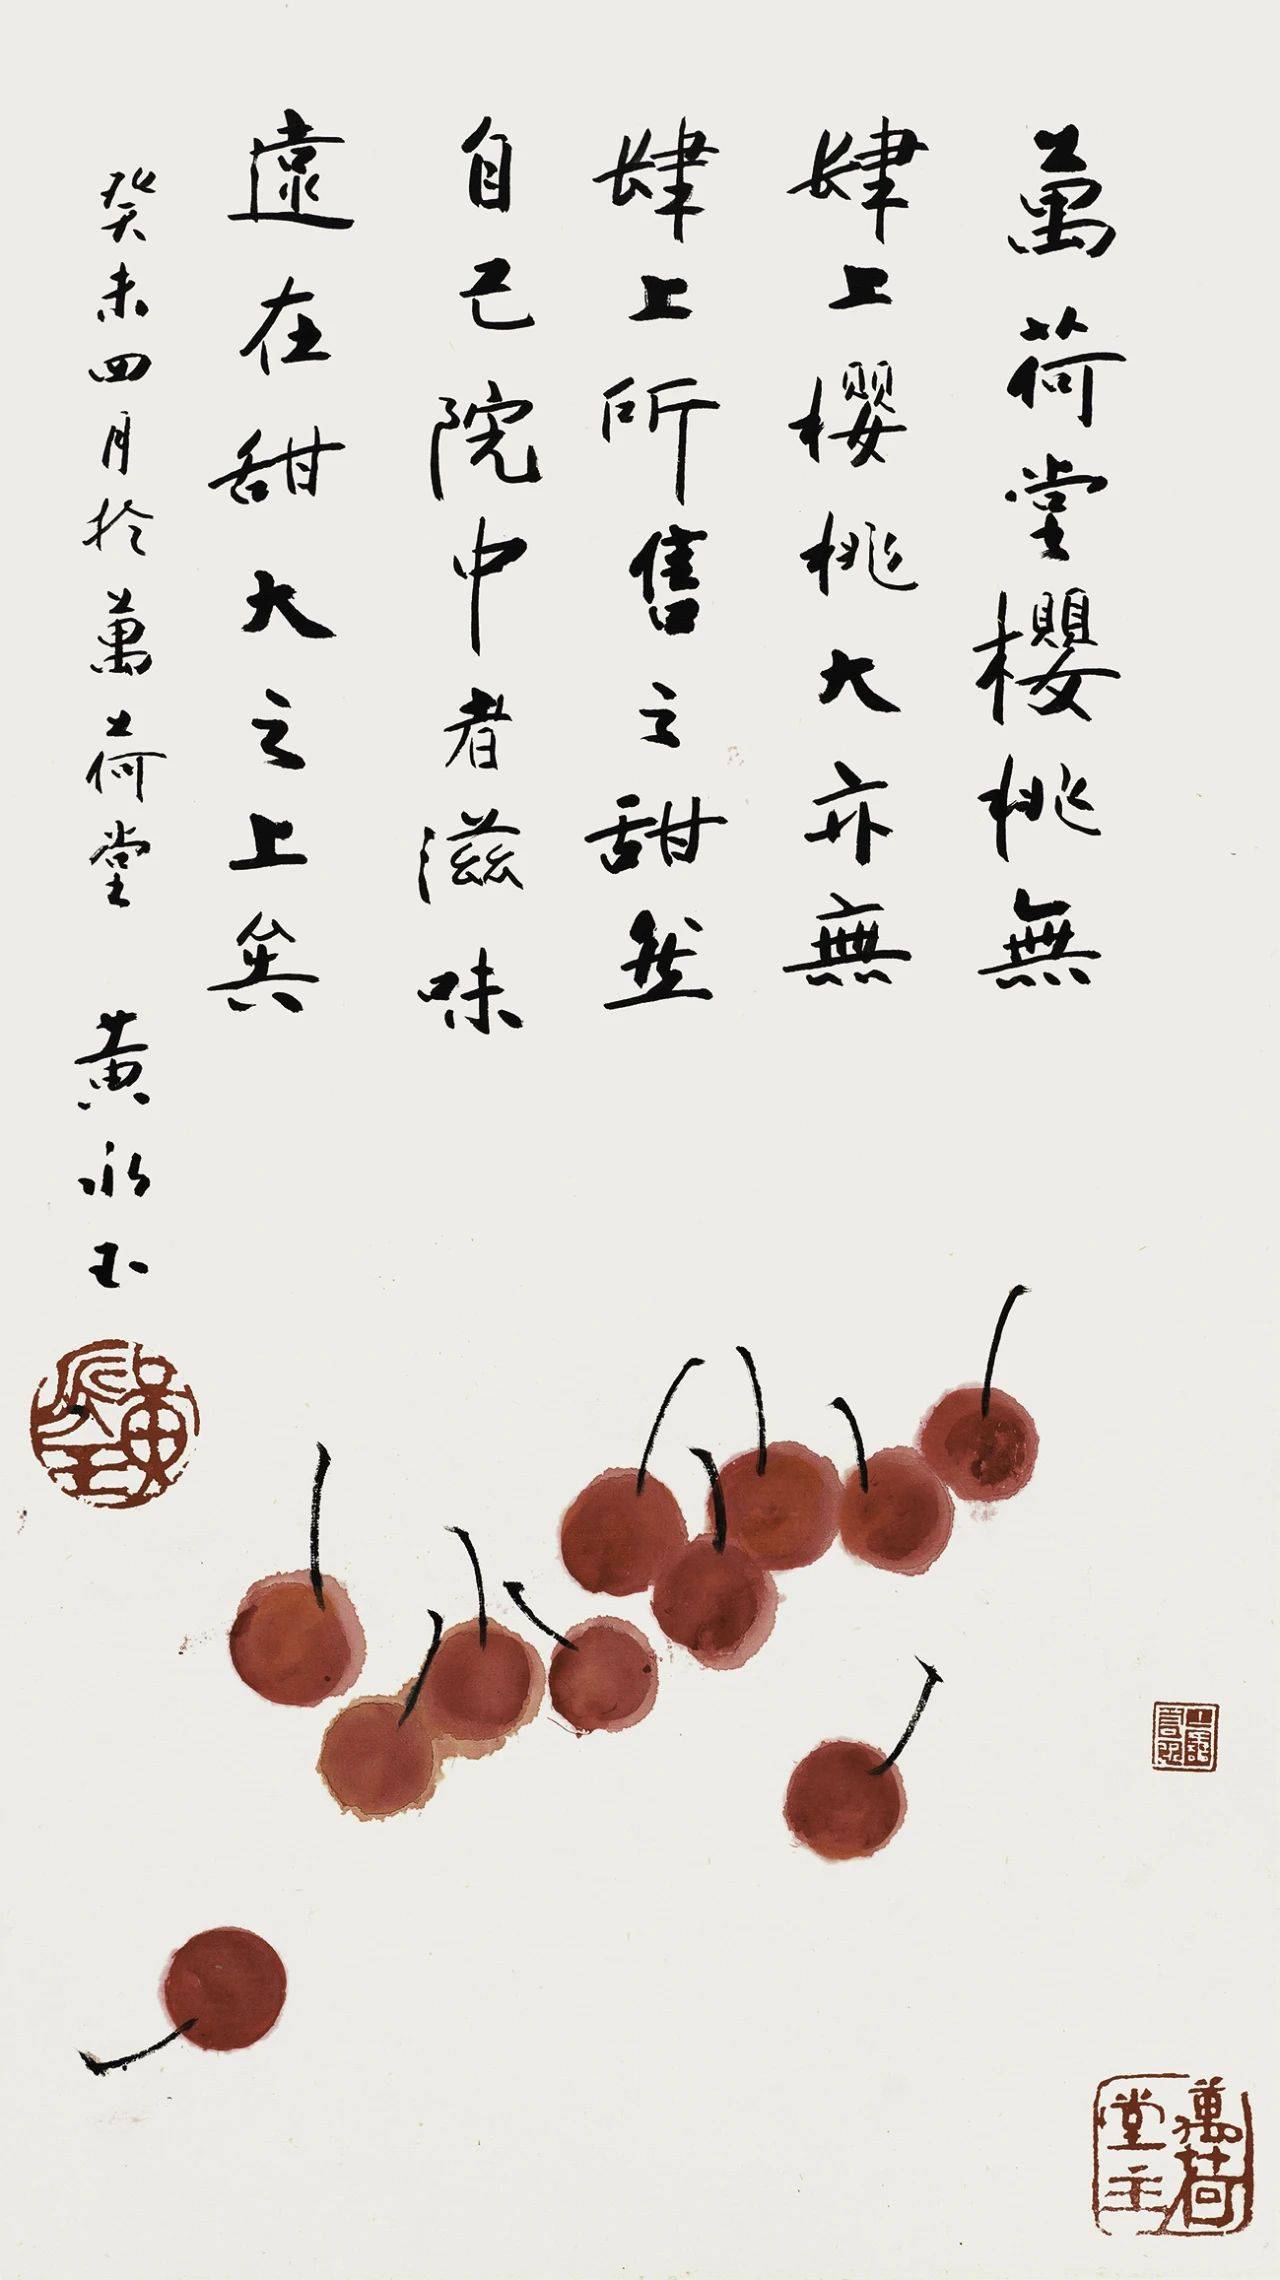 萬荷堂櫻桃無
肆上櫻桃大亦無
肆上所售之甜然
自己院中者滋味
遠在甜大之上矣
癸未四月於萬荷堂 黄永玉
黄永玉
萬荷堂主